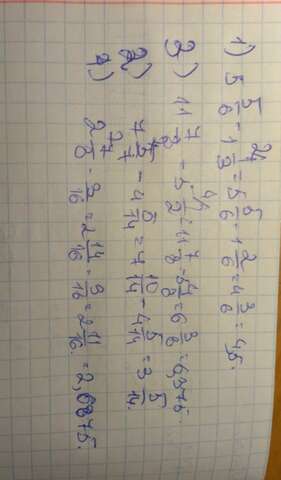 1) 5 5/6 - 1 1/3 = 5 5/6 - 1 2/6 = 4 3/6 = 4,5.
3) 11 7/8 - 5 1/2 = 11 7/8 - 5 4/8 = 6 3/8 = 6,375.
2) 7 5/7 - 4 5/14 = 4 10/14 - 4 5/14 = 3 5/14.
4) 2 7/8 - 3/16 = 2 14/16 - 3/16 = 2 11/16 = 2,6875.